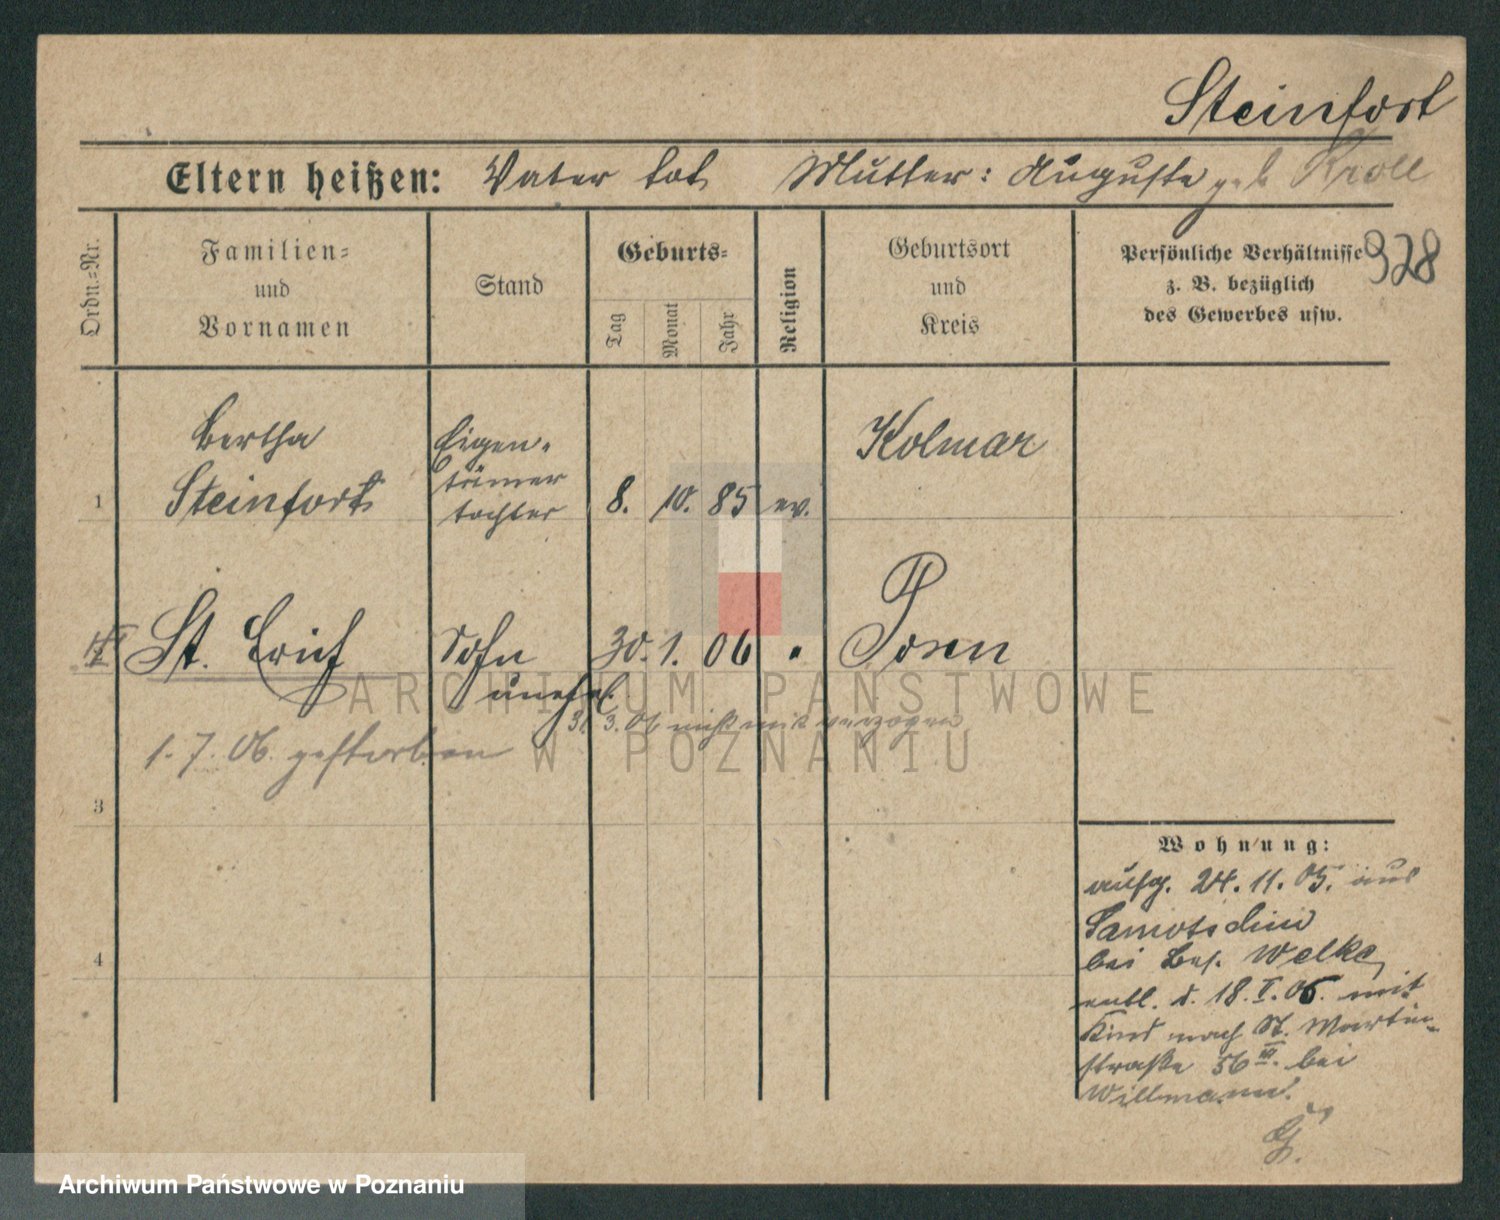 Steinfort
Eltern heißen: Vater tot Mutter: Auguste geb Kroll
Ordn.=Nr.
Familien=
und
Vornamen
Stand
Geburts=
Tag
Monat
Jahr
Religion
Geburtsort
und
Kreis
Persönliche Verhältnisse
z. B. bezüglich
des Gewerbes usw.
328
1
Bertha
Steinfort
Eigen-
tümer
tochter
8. 10. 85 ev.
Kolmar
St. Erich Sohn 30. 1. 06 " Posen
unehel.
31. 3. 06 nicht mit verzogen
1. 7. 06. gestorben
3
4
Wohnung:
aufg. 24. 11. 05. aus
Samotschin
bei Bes. Welke,
entl. d. 18. I. 06. mit
Kind nach St. Martin-
straße 56 III. bei
Willmann.
ARCHIWUM PAŃSTWOWE
W POZNANIU
Archiwum Państwowe w Poznaniu